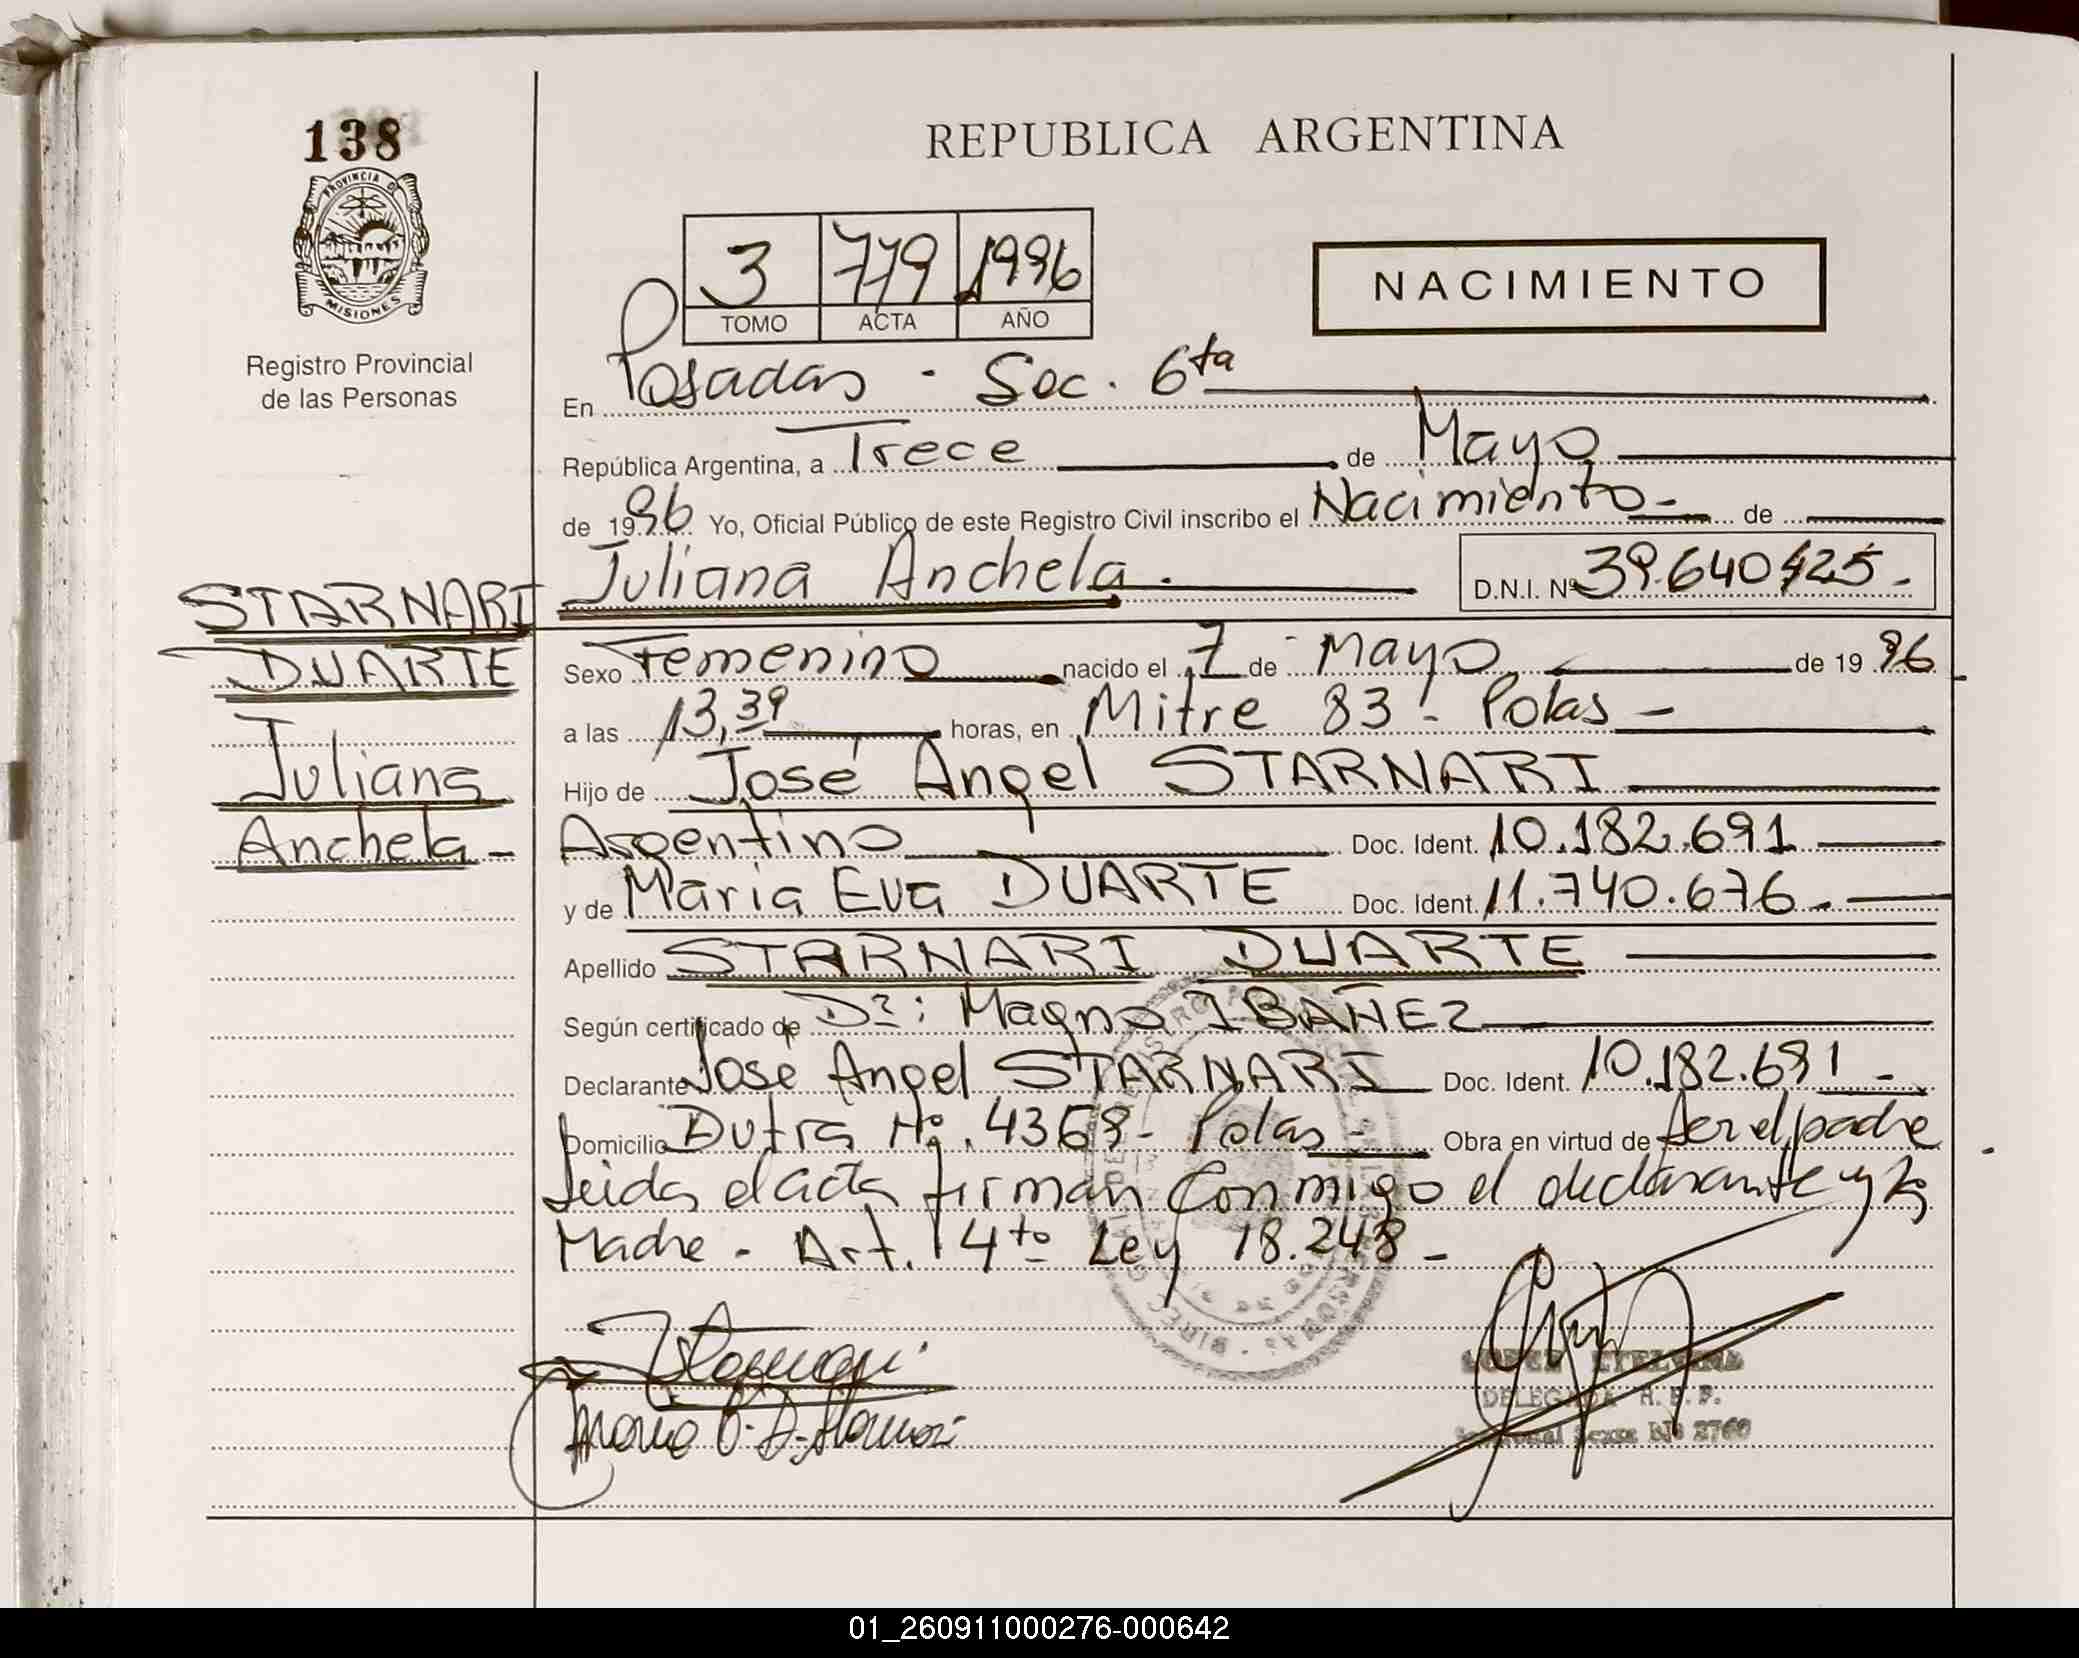 138
PROVINCIA DE
MISIONES
Registro Provincial
de las Personas
REPUBLICA ARGENTINA
3 779 1996
TOMO ACTA AÑO
NACIMIENTO
En Posadas - Sec. 6ta
República Argentina, a Trece de Mayo
de 1996 Yo, Oficial Público de este Registro Civil inscribo el Nacimiento - de
Juliana Anchela. D.N.I. Nº 39.640.425.-
STARNARI
DUARTE
Juliana
Anchela -
Sexo Femenino nacido el 7 de Mayo de 1996
a las 13,39 horas, en Mitre 83 - Pdas -
Hijo de José Angel STARNARI
Argentino Doc. Ident. 10.182.691
y de Maria Eva DUARTE Doc. Ident. 11.740.676.-
Apellido STARNARI DUARTE
Según certificado de Dr: Magno IBAÑEZ
Declarante José Angel STARNARI Doc. Ident. 10.182.691 -
Domicilio Dutra Nº. 4368- Pdas - Obra en virtud de ser el padre
Leida el acta firman conmigo el declarante y la
Madre - Art. 4to Ley 18.248 -
DELEGADA R. P. P.